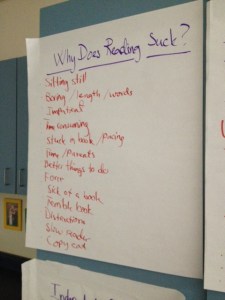 Why Does Reading Suck?
Sitting still
Boring / length / words
Impatient
Time consuming
Stuck in book / pacing
/ Parents
Better things to do
Font
Sick of a book
Terrible book
Distractions
Slow reader
Copy cat